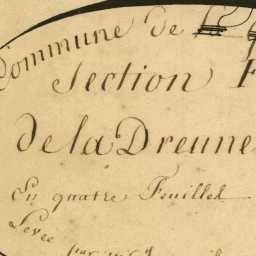 Commune de
Section F
de la Dreune
En quatre Feuilles
Levée
par